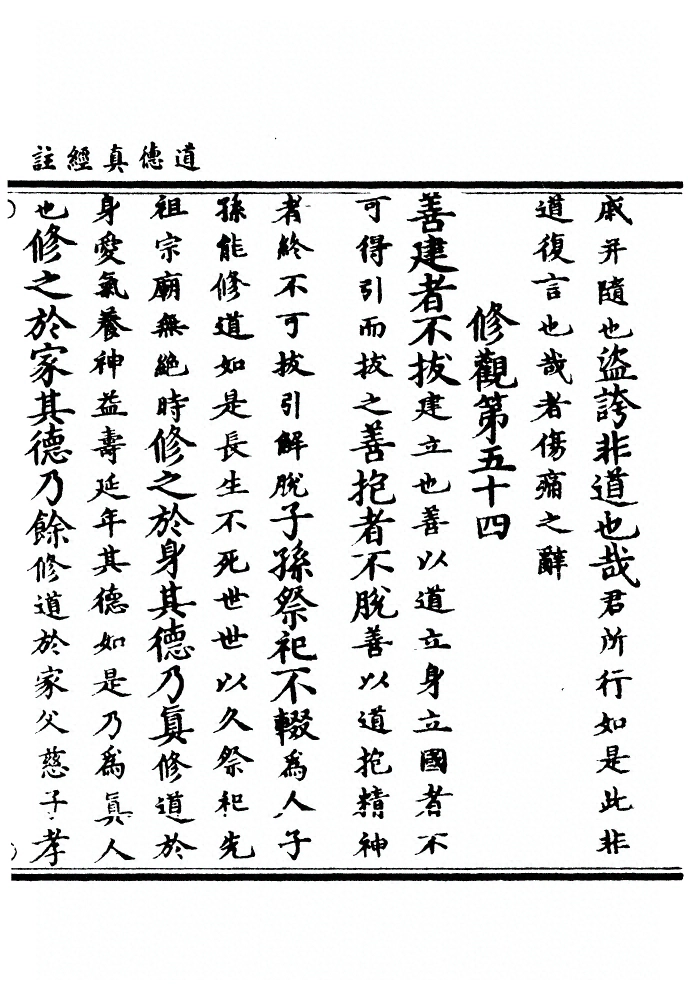 道德真經註
戚并隨也盜誇非道也哉君所行如是此非
道復言也哉者傷痛之辭
修觀第五十四
善建者不拔建立也善以道立身立國者不
可得引而拔之善抱者不脫善以道抱精神
者終不可拔引解脫子孫祭祀不輟為人子
孫能修道如是長生不死世世以久祭祀先
祖宗廟無絕時修之於身其德乃真修道於
身愛氣養神益壽延年其德如是乃為真人
也修之於家其德乃餘修道於家父慈子孝